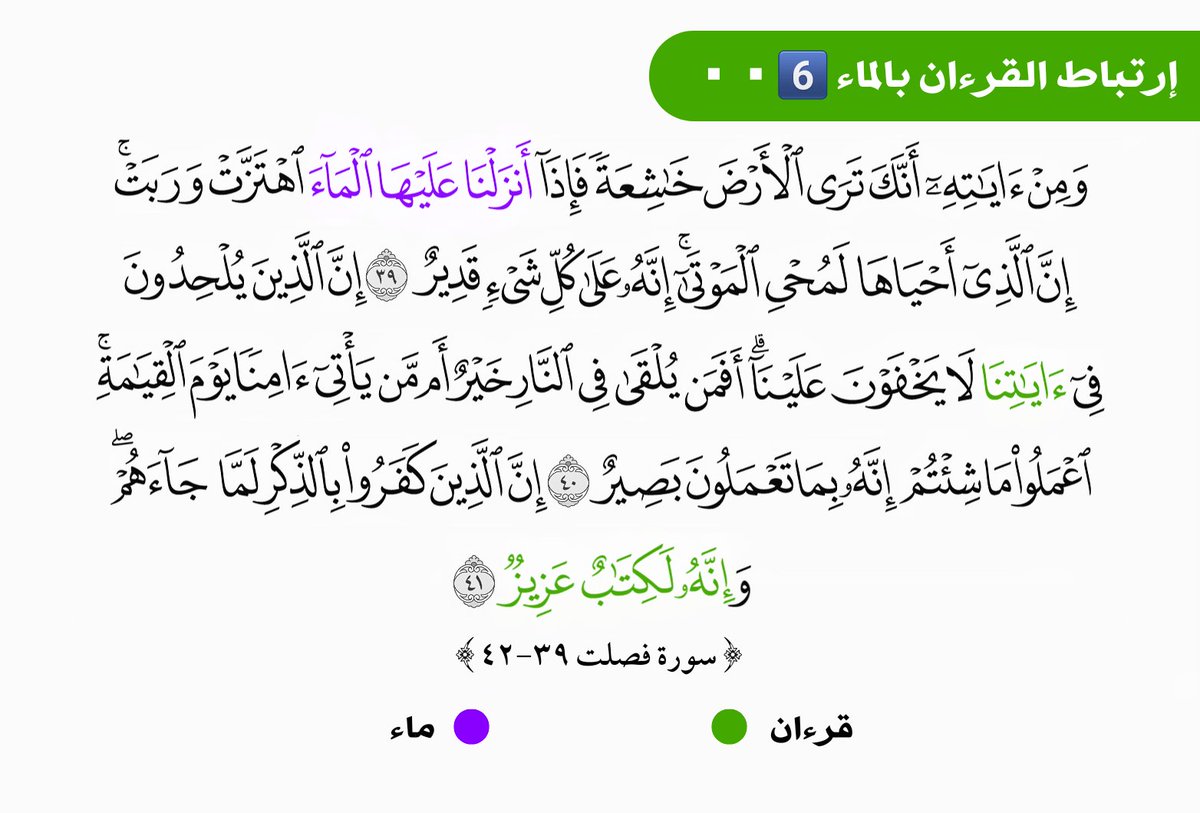 إرتباط القرءان بالماء 6
وَمِنْ ءَايَـٰتِهِۦٓ أَنَّكَ تَرَى ٱلْأَرْضَ خَـٰشِعَةً فَإِذَآ أَنزَلْنَا عَلَيْهَا ٱلْمَآءَ ٱهْتَزَّتْ وَرَبَتْ ۚ
إِنَّ ٱلَّذِىٓ أَحْيَاهَا لَمُحْىِ ٱلْمَوْتَىٰٓ ۚ إِنَّهُۥ عَلَىٰ كُلِّ شَىْءٍ قَدِيرٌ ٣٩ إِنَّ ٱلَّذِينَ يُلْحِدُونَ
فِىٓ ءَايَـٰتِنَا لَا يَخْفَوْنَ عَلَيْنَآ ۗ أَفَمَن يُلْقَىٰ فِى ٱلنَّارِ خَيْرٌ أَم مَّن يَأْتِىٓ ءَامِنًا يَوْمَ ٱلْقِيَـٰمَةِ ۚ
ٱعْمَلُوا۟ مَا شِئْتُمْ إِنَّهُۥ بِمَا تَعْمَلُونَ بَصِيرٌ ٤٠ إِنَّ ٱلَّذِينَ كَفَرُوا۟ بِٱلذِّكْرِ لَمَّا جَآءَهُمْ ۖ
وَإِنَّهُۥ لَكِتَـٰبٌ عَزِيزٌ ٤١
﴿سورة فصلت ٣٩-٤٢﴾
قرءان ماء